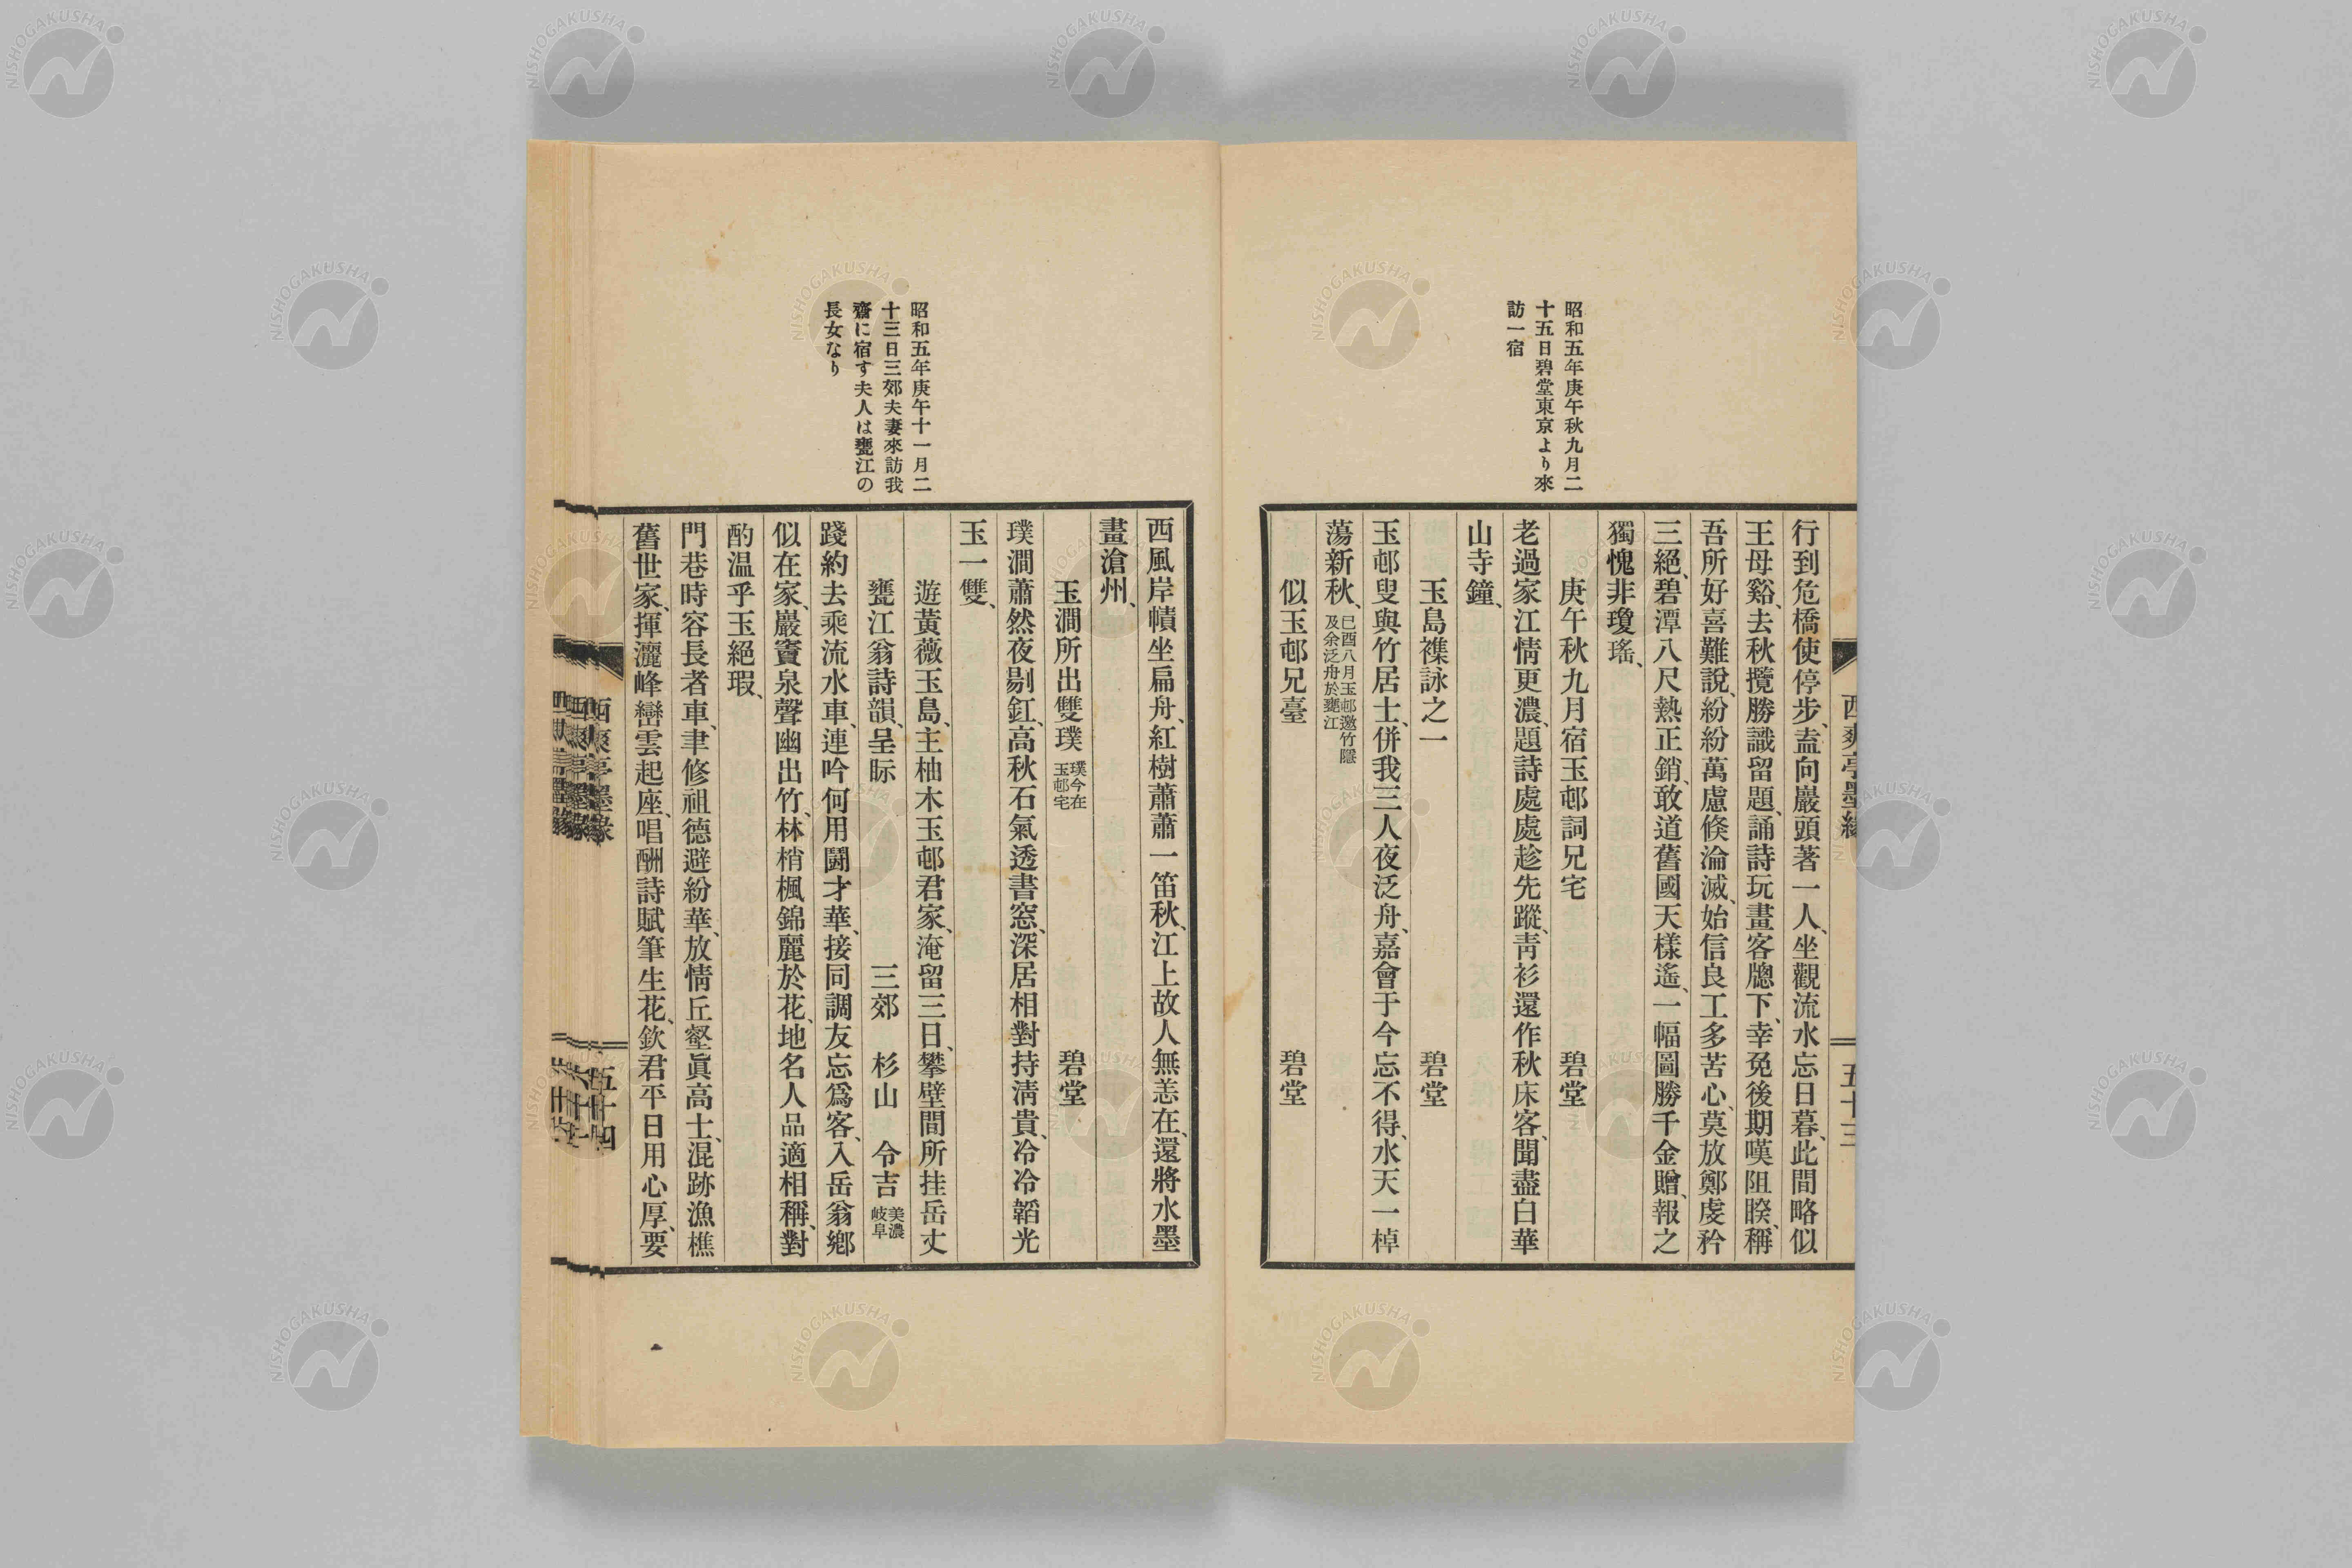 昭和五年庚午秋九月二
十五日碧堂東京より來
訪一宿
西爽亭墨緣
五十三
行到危橋使停步、盍向巖頭著一人、坐觀流水忘日暮、此間略似
王母谿、去秋攬勝識留題、誦詩玩畫客牕下、幸免後期嘆阻睽、稱
吾所好喜難說、紛紛萬慮倏淪滅、始信良工多苦心、莫放鄭虔矜
三絕、碧潭八尺熱正銷、敢道舊國天樣遙、一幅圖勝千金贈、報之
獨愧非瓊瑤、
庚午秋九月宿玉邨詞兄宅 碧堂
老過家江情更濃、題詩處處趁先蹤、靑衫還作秋床客、聞盡白華
山寺鐘、
玉島襍詠之一 碧堂
玉邨叟與竹居士、併我三人夜泛舟、嘉會于今忘不得、水天一棹
蕩新秋、已酉八月玉邨邀竹隱
及余泛舟於甕江
似玉邨兄臺 碧堂
昭和五年庚午十一月二
十三日三郊夫妻來訪我
齋に宿す夫人は甕江の
長女なり
西風岸幘坐扁舟、紅樹蕭蕭一笛秋、江上故人無恙在、還將水墨
畫滄州、
玉澗所出雙璞 璞今在
玉邨宅 碧堂
璞澗蕭然夜剔釭、高秋石氣透書窓、深居相對持淸貴、冷冷韜光
玉一雙、
遊黃薇玉島、主柚木玉邨君家、淹留三日、攀壁間所挂岳丈
甕江翁詩韻、呈眎 三郊 杉山 令吉 美濃
岐阜
踐約去乘流水車、連吟何用鬪才華、接同調友忘爲客、入岳翁鄕
似在家、巖竇泉聲幽出竹、林梢楓錦麗於花、地名人品適相稱、對
酌温乎玉絕瑕、
門巷時容長者車、聿修祖德避紛華、放情丘壑眞高士、混跡漁樵
舊世家、揮灑峰巒雲起座、唱酬詩賦筆生花、欽君平日用心厚、要
西爽亭墨緣
五十四